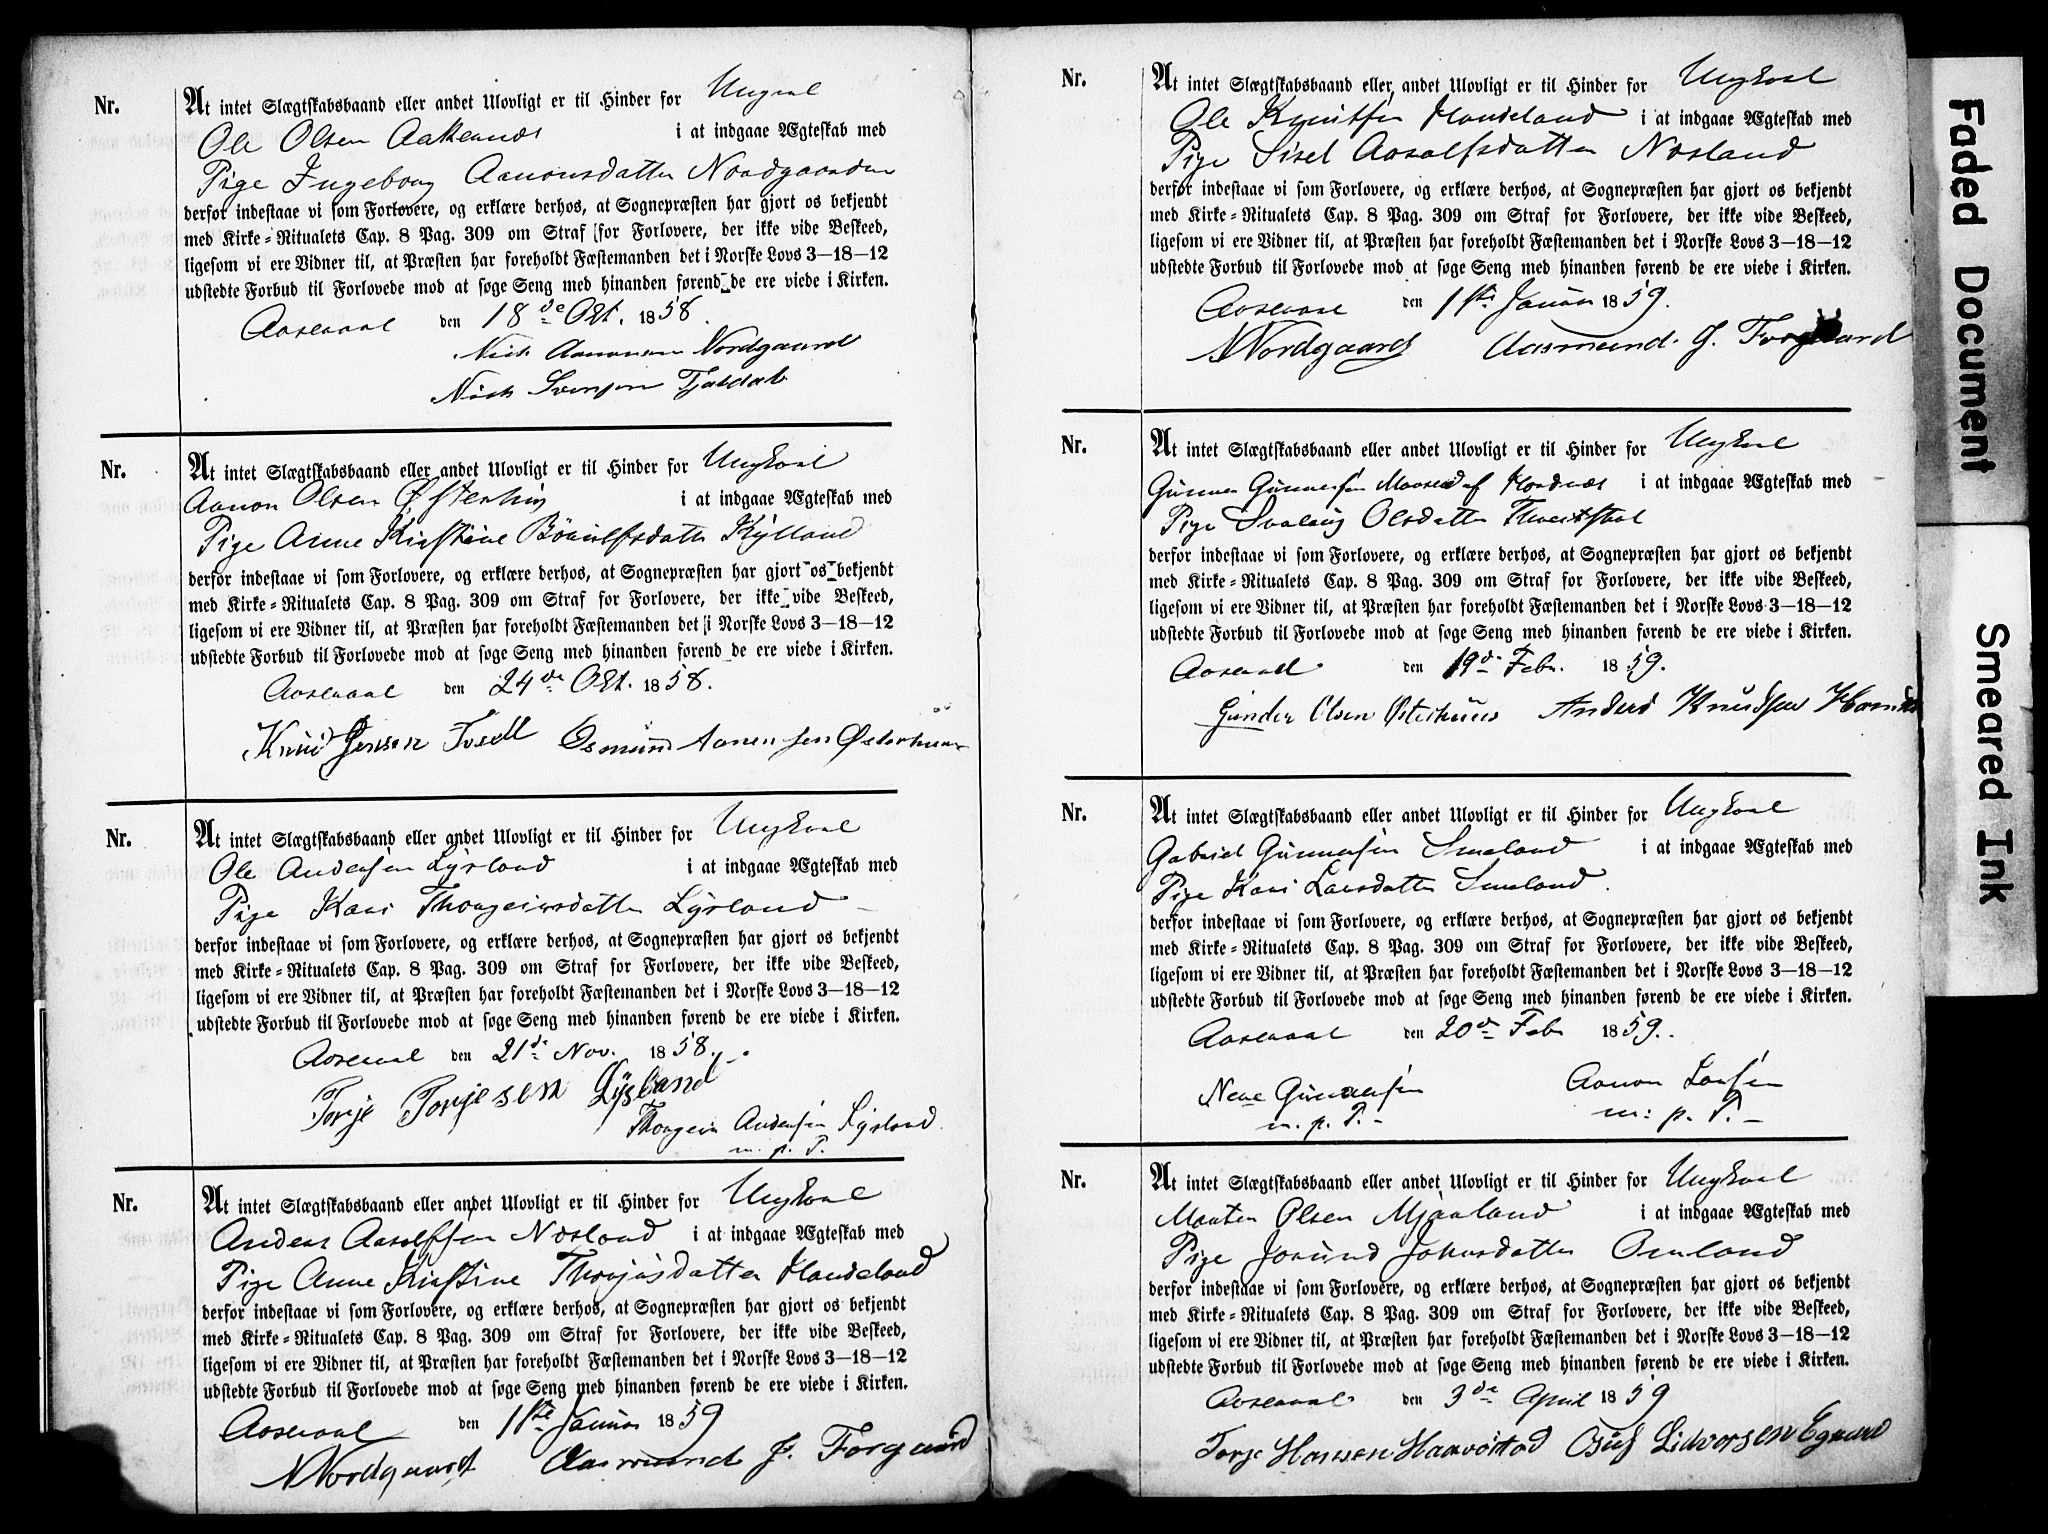 Nr.
At intet Slægtskabsbaand eller andet Ulovligt er til Hinder for Ungkal
Ole Olsen Aaknæs i at indgaae Ægteskab med
Pige Ingeborg Aanonsdatter Nordgaarden
derfor indestaae vi som Forlovere, og erklære derhos, at Sognepræsten har gjort os bekjendt
med Kirke=Ritualets Cap. 8 Pag. 309 om Straf for Forlovere, der ikke vide Beskeed,
ligesom vi ere Vidner til, at Præsten har foreholdt Fæstemanden det i Norske Lovs 3—18—12
udstedte Forbud til Forlovede mod at søge Seng med hinanden førend de ere viede i Kirken.
Aaseral den 18de Okt. 1858.
Nordgaard
Nr.
At intet Slægtskabsbaand eller andet Ulovligt er til Hinder for Ungkal
Aanon Olsen Østerhus i at indgaae Ægteskab med
Pige Anne Kirstine Kylland
derfor indestaae vi som Forlovere, og erklære derhos, at Sognepræsten har gjort os bekjendt
med Kirke=Ritualets Cap. 8 Pag. 309 om Straf for Forlovere, der ikke vide Beskeed,
ligesom vi ere Vidner til, at Præsten har foreholdt Fæstemanden det i Norske Lovs 3—18—12
udstedte Forbud til Forlovede mod at søge Seng med hinanden førend de ere viede i Kirken.
Aaseral den 24de Okt. 1858.
Knud Jensen Osmund Aanensen Østerhuus
Nr.
At intet Slægtskabsbaand eller andet Ulovligt er til Hinder for Ungkal
Ole Andersen Lysland i at indgaae Ægteskab med
Pige Kari Thorgeirsdatter Lysland
derfor indestaae vi som Forlovere, og erklære derhos, at Sognepræsten har gjort os bekjendt
med Kirke=Ritualets Cap. 8 Pag. 309 om Straf for Forlovere, der ikke vide Beskeed,
ligesom vi ere Vidner til, at Præsten har foreholdt Fæstemanden det i Norske Lovs 3—18—12
udstedte Forbud til Forlovede mod at søge Seng med hinanden førend de ere viede i Kirken.
Aaseral den 21de Nov. 1858.
Torje Torjesen Lysland
Thorgeir Andersen Lysland
m. p. P.
Nr.
At intet Slægtskabsbaand eller andet Ulovligt er til Hinder for Ungkal
Anders Aasulfsen Næsland i at indgaae Ægteskab med
Pige Anne Kirstine Thorjusdatter Handeland
derfor indestaae vi som Forlovere, og erklære derhos, at Sognepræsten har gjort os bekjendt
med Kirke=Ritualets Cap. 8 Pag. 309 om Straf for Forlovere, der ikke vide Beskeed,
ligesom vi ere Vidner til, at Præsten har foreholdt Fæstemanden det i Norske Lovs 3—18—12
udstedte Forbud til Forlovede mod at søge Seng med hinanden førend de ere viede i Kirken.
Aaseral den 1ste Januar 1859
NNordgaard Aasmund J. Forgaard
Nr.
At intet Slægtskabsbaand eller andet Ulovligt er til Hinder for Ungkal
Ole Knutsen Handeland i at indgaae Ægteskab med
Pige Sisel Aasulfsdatter Næsland
derfor indestaae vi som Forlovere, og erklære derhos, at Sognepræsten har gjort os bekjendt
med Kirke=Ritualets Cap. 8 Pag. 309 om Straf for Forlovere, der ikke vide Beskeed,
ligesom vi ere Vidner til, at Præsten har foreholdt Fæstemanden det i Norske Lovs 3—18—12
udstedte Forbud til Forlovede mod at søge Seng med hinanden førend de ere viede i Kirken.
Aaseral den 1ste Januar 1859.
NNordgaard Aasmund J. Forgaard
Nr.
At intet Slægtskabsbaand eller andet Ulovligt er til Hinder for Ungkal
Gunner Gunnersen af i at indgaae Ægteskab med
Pige Olsdatter
derfor indestaae vi som Forlovere, og erklære derhos, at Sognepræsten har gjort os bekjendt
med Kirke=Ritualets Cap. 8 Pag. 309 om Straf for Forlovere, der ikke vide Beskeed,
ligesom vi ere Vidner til, at Præsten har foreholdt Fæstemanden det i Norske Lovs 3—18—12
udstedte Forbud til Forlovede mod at søge Seng med hinanden førend de ere viede i Kirken.
Aaseral den 19de Febr. 1859.
Gunder Olsen Østerhuus Anders Knudsen
Nr.
At intet Slægtskabsbaand eller andet Ulovligt er til Hinder for Ungkal
Gabriel Gunnersen Smeland i at indgaae Ægteskab med
Pige Kari Larsdatter Smeland.
derfor indestaae vi som Forlovere, og erklære derhos, at Sognepræsten har gjort os bekjendt
med Kirke=Ritualets Cap. 8 Pag. 309 om Straf for Forlovere, der ikke vide Beskeed,
ligesom vi ere Vidner til, at Præsten har foreholdt Fæstemanden det i Norske Lovs 3—18—12
udstedte Forbud til Forlovede mod at søge Seng med hinanden førend de ere viede i Kirken.
Aaseral den 20de Febr 1859.
Gunnersen Aanon Larsen
m. p. P. m: p. P.
Nr.
At intet Slægtskabsbaand eller andet Ulovligt er til Hinder for Ungkal
Olsen Mjaaland i at indgaae Ægteskab med
Pige Jorund Johnsdatter Omland
derfor indestaae vi som Forlovere, og erklære derhos, at Sognepræsten har gjort os bekjendt
med Kirke=Ritualets Cap. 8 Pag. 309 om Straf for Forlovere, der ikke vide Beskeed,
ligesom vi ere Vidner til, at Præsten har foreholdt Fæstemanden det i Norske Lovs 3—18—12
udstedte Forbud til Forlovede mod at søge Seng med hinanden førend de ere viede i Kirken.
Aaseral den 3de April 1859
Torje Hansen Lidvorsen
Faded Document
Smeared Ink